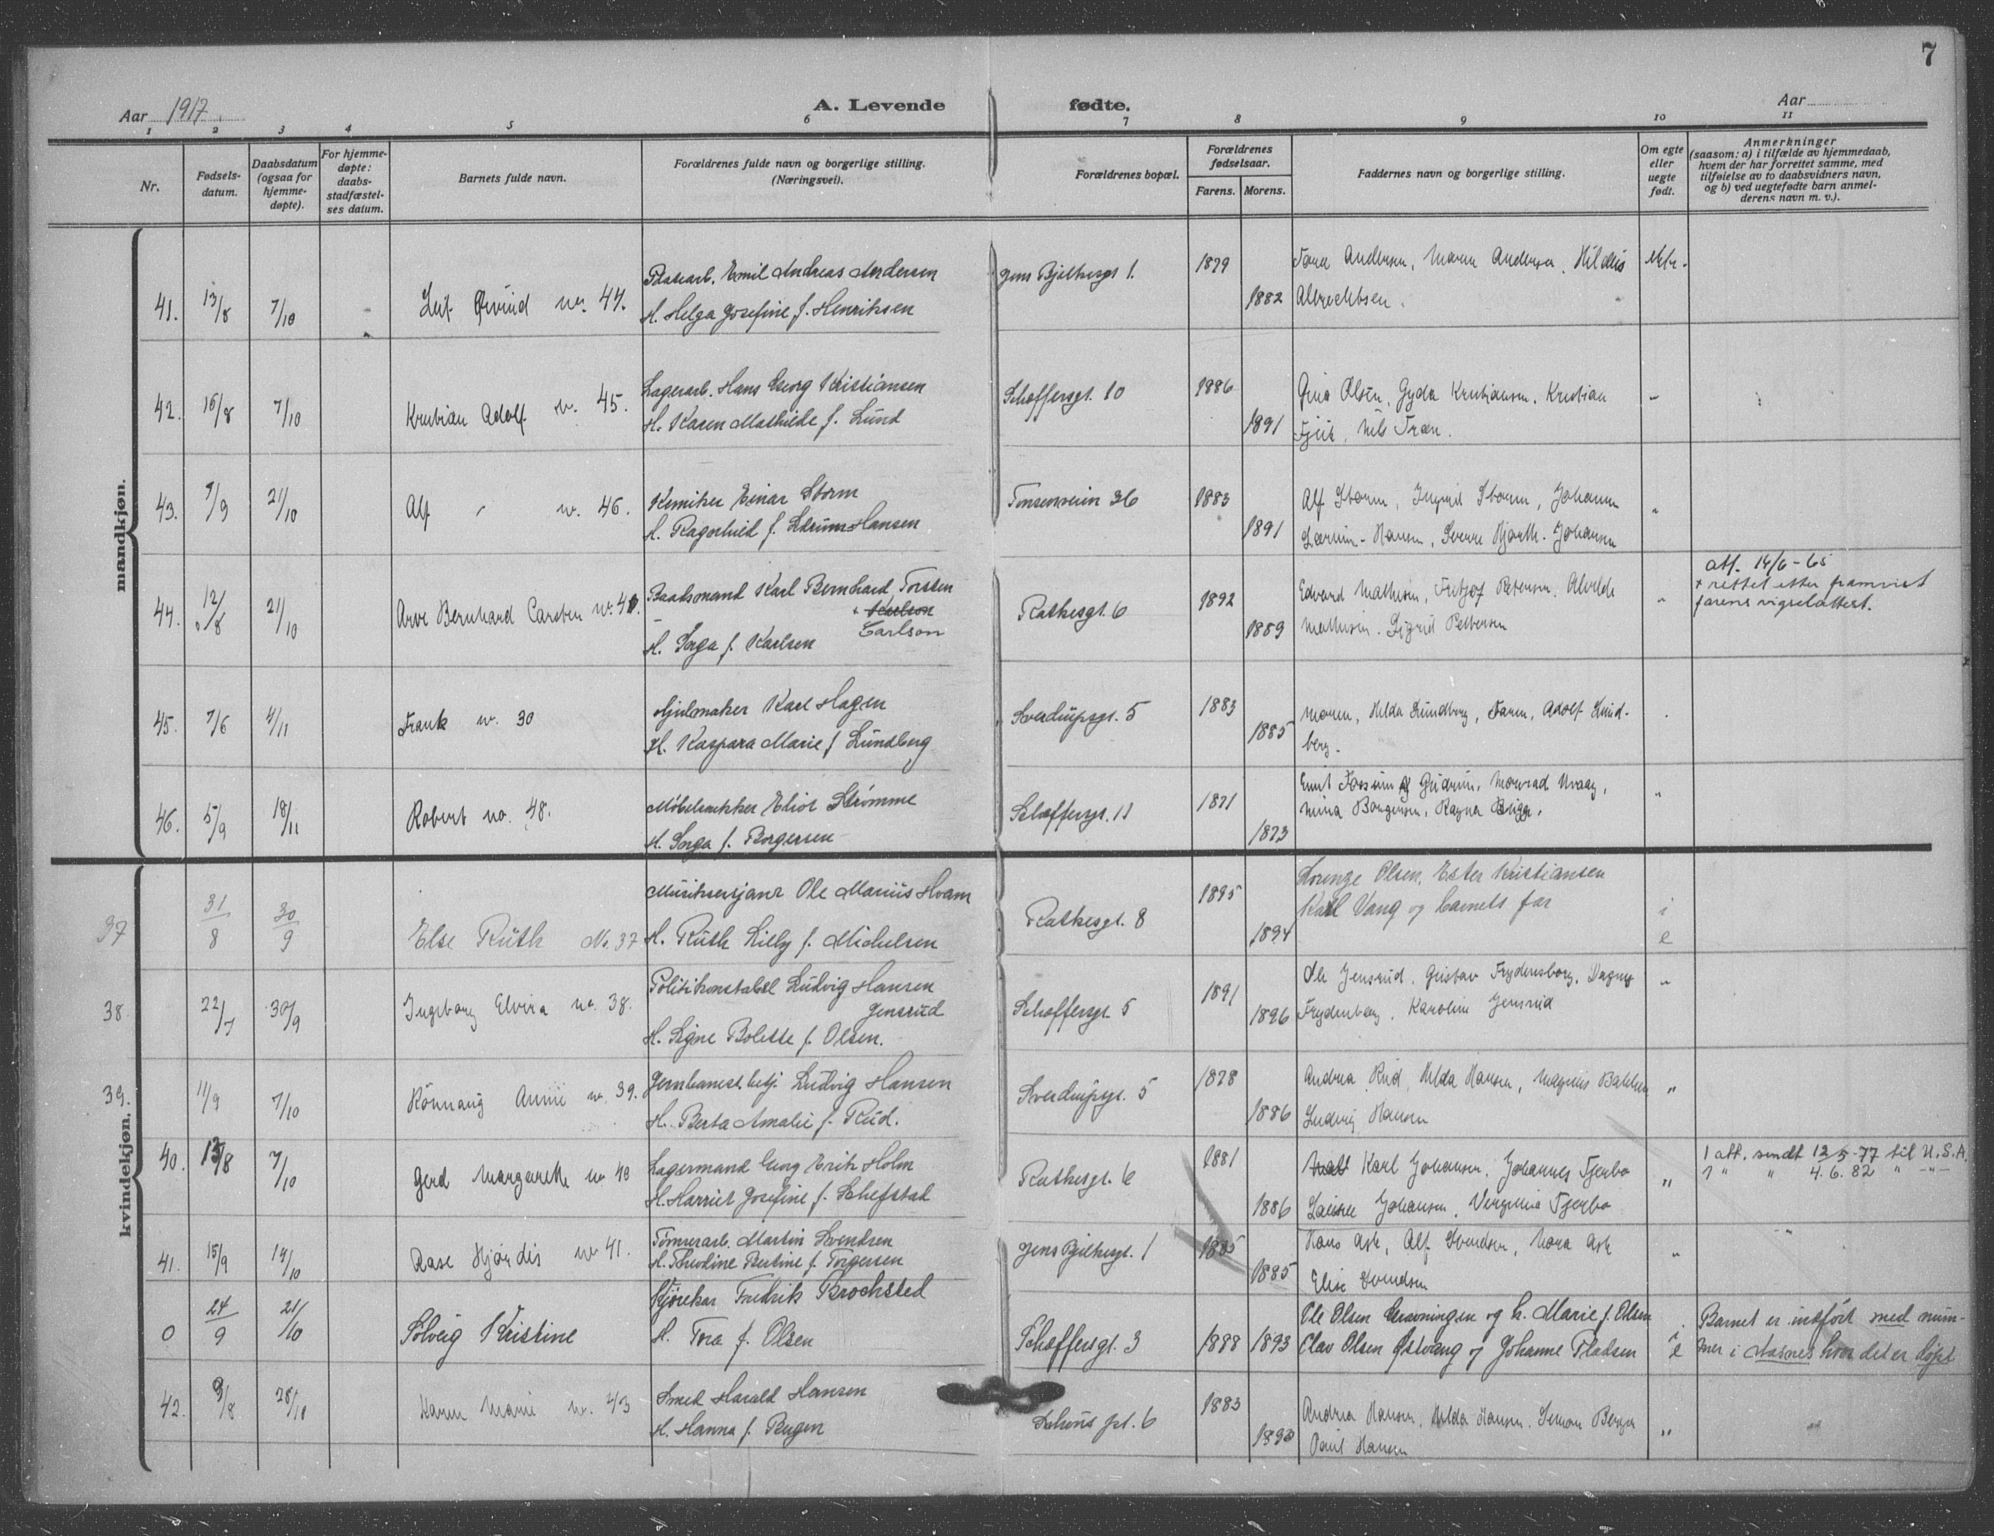 7
Aar 1917.
A. Levende fødte.
Aar
1 2 3 4 5 6 7 8 9 10 11
Nr.
Fødsels-
datum.
Daabsdatum
(ogsaa for
hjemme-
døpte).
For hjemme-
døpte:
daabs-
stadfæstel-
ses datum.
Barnets fulde navn.
Forældrenes fulde navn og borgerlige stilling.
(Næringsvei).
Forældrenes bopæl.
Forældrenes
fødselsaar.
Farens. Morens.
Faddernes navn og borgerlige stilling.
Om egte
eller
uegte
født.
Anmerkninger
(saasom: a) i tilfælde av hjemmedaab,
hvem der har forrettet samme, med
tilføielse av to daabsvidners navn,
og b) ved uegtefødte barn anmel-
derens navn m. v.).
mandkjøn.
41. 13/8 7/10 Leif Øivind no. 44.
Emil Andreas Andersen
H. Helga Josefine f. Henriksen
Jens Bjelkesgt 1. 1879 1882
Andersen, Maren Andersen, Hildus
Albrechtsen.
42. 16/8 7/10 Kristian Adolf no. 45.
Lagerarb. Hans Georg Kristiansen
H. Karen Mathilde f. Lund
Schøffersgt. 10 1886 1891
Gina Olsen, Gyda Kristiansen, Kristian
Nils
43. 7/9 21/10 Alf no. 46.
Kemiker Einar Storm
H. Ragnhild f. Lærum-Hansen
Tonsenveien 36 1883 1891
Alf Storm, Ingrid Storm, Johanne
Lærum-Hansen, Sverre Hjorth-Johansen
44. 12/8 21/10 Arve Bernhard Carsten
Baatsmand Karl Bernhard Torsten
+ Karlson
Carlson
H. Inga f. Karlsen
Rathkesgt. 6 1892 1889
Edvard Mathisen, Fritjof Petersen, Alvilde
Mathisen. Sigrid Pettersen
att. 14/6-65
+ rettet etter framvist
farens vigselattest.
45. 7/6 4/11 Frank no. 30
Hjulmaker Karl Hagen
H. Kaspara Marie f. Lundberg
Sverdrupsgt. 5 1883 1885
Moren, Hilda Lundberg, Faren, Adolf Lund-
berg.
46. 5/9 18/11 Robert no. 48.
Møbelsnekker Elior Strømme
H. Inga f. Borgersen
Schøffersgt. 11 1871 1873
Fossum Gudrun,
Mina Borgersen, Ragna
kvindekjøn.
37 31/8 30/9 Else Ruth No. 37
Ole Marius Hvam
H. Ruth Lilly f. Michelsen
Rathkesgt. 8 1895 1894
Lorenge Olsen, Ester Kristiansen
Karl Vang og barnets far
i
e
38. 22/7 30/9 Ingeborg Elvira no. 38.
Politikonstabel Ludvig Hansen
Jensrud
H. Signe Bolette f. Olsen.
Schøffersgt. 5 1891 1896
Ole Jensrud, Gustav Frydensborg, Dagny
Frydenberg, Karoline Jensrud
39. 11/9 7/10 Rönnaug Annie no. 39.
Jernbanest.betj. Ludvig Hansen
H. Berta Amalie f. Rud.
Sverdrupsgt. 5 1878 1886
Andrea Rud, Hilda Hansen, Magnus Bakken
Ludvig Hansen
40. 13/8 7/10 Gerd Margarethe no 40
Lagermand Georg Erik Holm
H. Harriet Josefine f. Schefstad
Rathkesgt. 6 1881 1886
Karl Johansen, Johannes Fjerbo
Louise Johansen, Verginia Fjerbo
1 att. sendt 12-5-77 til U.S.A.
1 " " 4.6.82 " -"-
41. 15/9 14/10 Aase Hjørdis no 41.
Tömrerarb. Martin Svendsen
H. Thevdine Bertine f. Torgersen
Jens Bjelkesgt. 1 1885 1885
Hans Ask, Alf Svendsen, Nora Ask
Elise Svendsen
0 24/9 21/10 Solveig Kristine
Kjørekar Fredrik Brochsted
H. Tora f. Olsen
Schøffersgt. 3 1888 1893
Ole Olsen Grønningen og h. Marie f. Olsen
Olav Olsen Østvang og Johanne Fladsen
Barnet er indført med num-
mer i Aasnes hvor det er døpt
42. 9/8 28/10 Karen Marie no. 43
Smed Harald Hansen
H. Hanna f. Bugen
6 1883
Andrea Hansen, Hilda Hansen, Simon
Paul Hansen